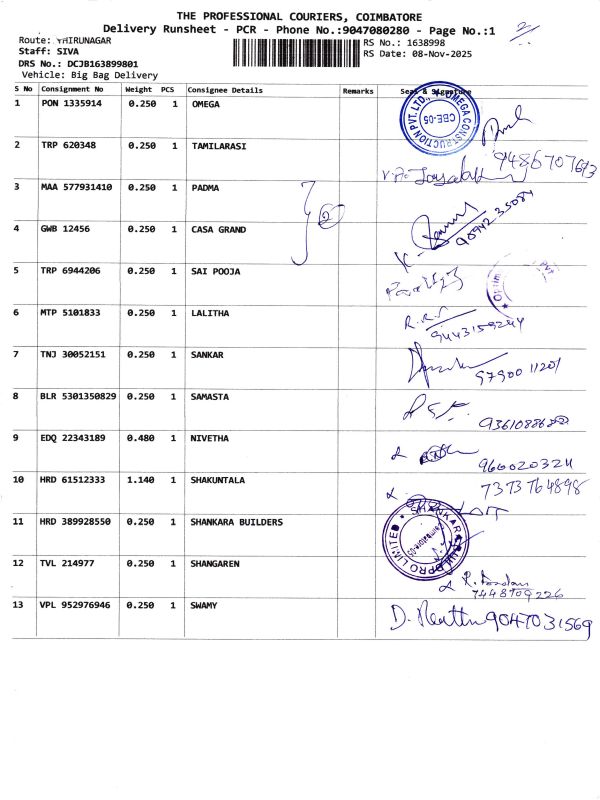 THE PROFESSIONAL COURIERS, COIMBATORE
Delivery Runsheet - PCR - Phone No.:9047080280 - Page No.:1
Route: THIRUNAGAR
RS No.: 1638998
Staff: SIVA
RS Date: 08-Nov-2025
DRS No.: DCJB163899801
Vehicle: Big Bag Delivery
S No Consignment No Weight PCS Consignee Details Remarks Seal & Signature
1 PON 1335914 0.250 1 OMEGA
OMEGA CONSTRUCTION PVT. LTD.,
CBE-05
2 TRP 620348 0.250 1 TAMILARASI
9486707613
3 MAA 577931410 0.250 1 PADMA
2
4 GWB 12456 0.250 1 CASA GRAND
5 TRP 6944206 0.250 1 SAI POOJA
6 MTP 5101833 0.250 1 LALITHA
R.R.S
9443159244
7 TNJ 30052151 0.250 1 SANKAR
97900 11201
8 BLR 5301350829 0.250 1 SAMASTA
9 EDQ 22343189 0.480 1 NIVETHA
966020324
10 HRD 61512333 1.140 1 SHAKUNTALA
7373764898
11 HRD 389928550 0.250 1 SHANKARA BUILDERS
SHANKARA BUILDPRO LIMITED
12 TVL 214977 0.250 1 SHANGAREN
7448709226
13 VPL 952976946 0.250 1 SWAMY
9047031569